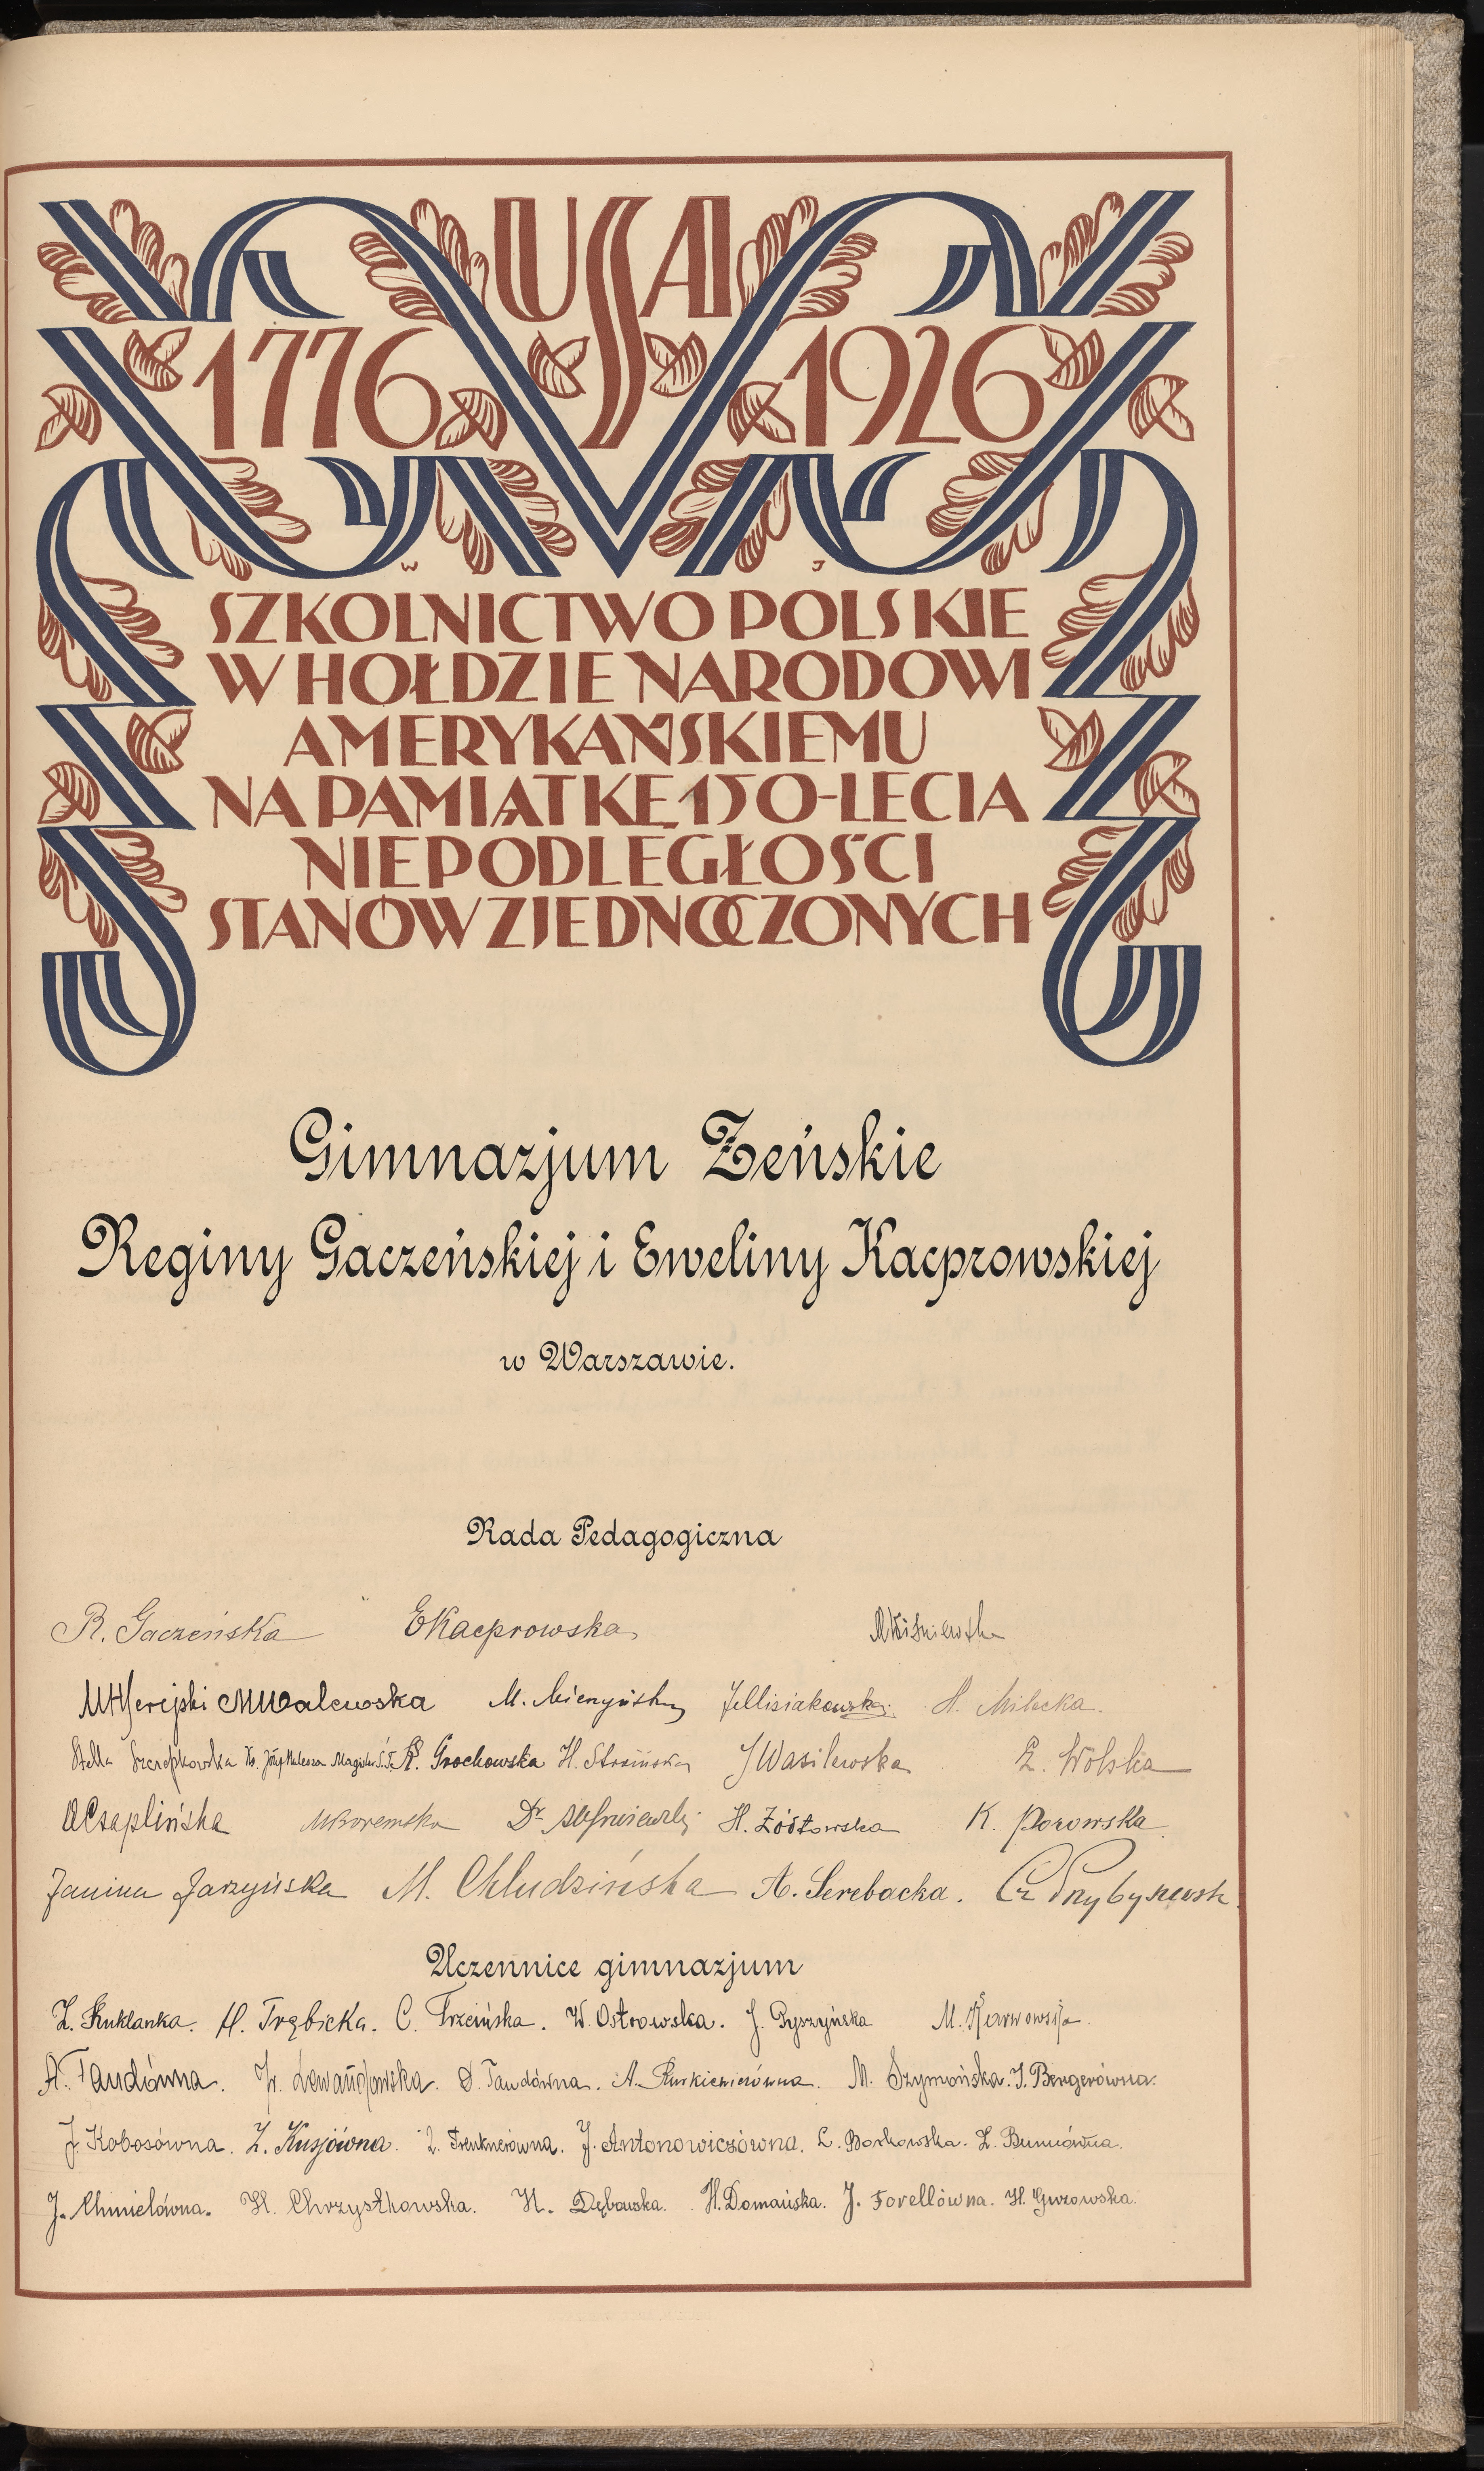 USA
1776 1926
W J
SZKOLNICTWO POLSKIE
W HOŁDZIE NARODOWI
AMERYKAŃSKIEMU
NA PAMIĄTKĘ 150-LECIA
NIEPODLEGŁOŚCI
STANÓW ZJEDNOCZONYCH
Gimnazjum Żeńskie
Reginy Gaczeńskiej i Eweliny Kacprowskiej
w Warszawie.
Rada Pedagogiczna
R. Gaczeńska EKacprowska MWiśniewska
MWalewska M. H. Milecka.
Stella Szczepkowska Ks. Józef Magister Ś.T. R. Grochowska H. JWasilewska Z. Wolska
ACzaplińska Dr H. Żółtowska K. Porowska
Janina Jarzyńska M. Chludzińska A. Serebacka. Cz
Uczennice gimnazjum
Z. Kuklanka. H. Trębicka. C. Trzcińska. W. Ostrowska. J. Pyszyńska M. Karwowska.
A. Taudówna. Lewandowska. S. Taudówna. A. M. Szymońska. I. Bergerówna.
J. Kobosówna. Z. Kusjówna. I. Trenknerówna. J. Antonowiczówna. L. Borkowska. Z.
J. Chmielówna. H. Chrzystkowska. H. Dębowska. H. Domańska. J. Forellówna. H. Gurowska.